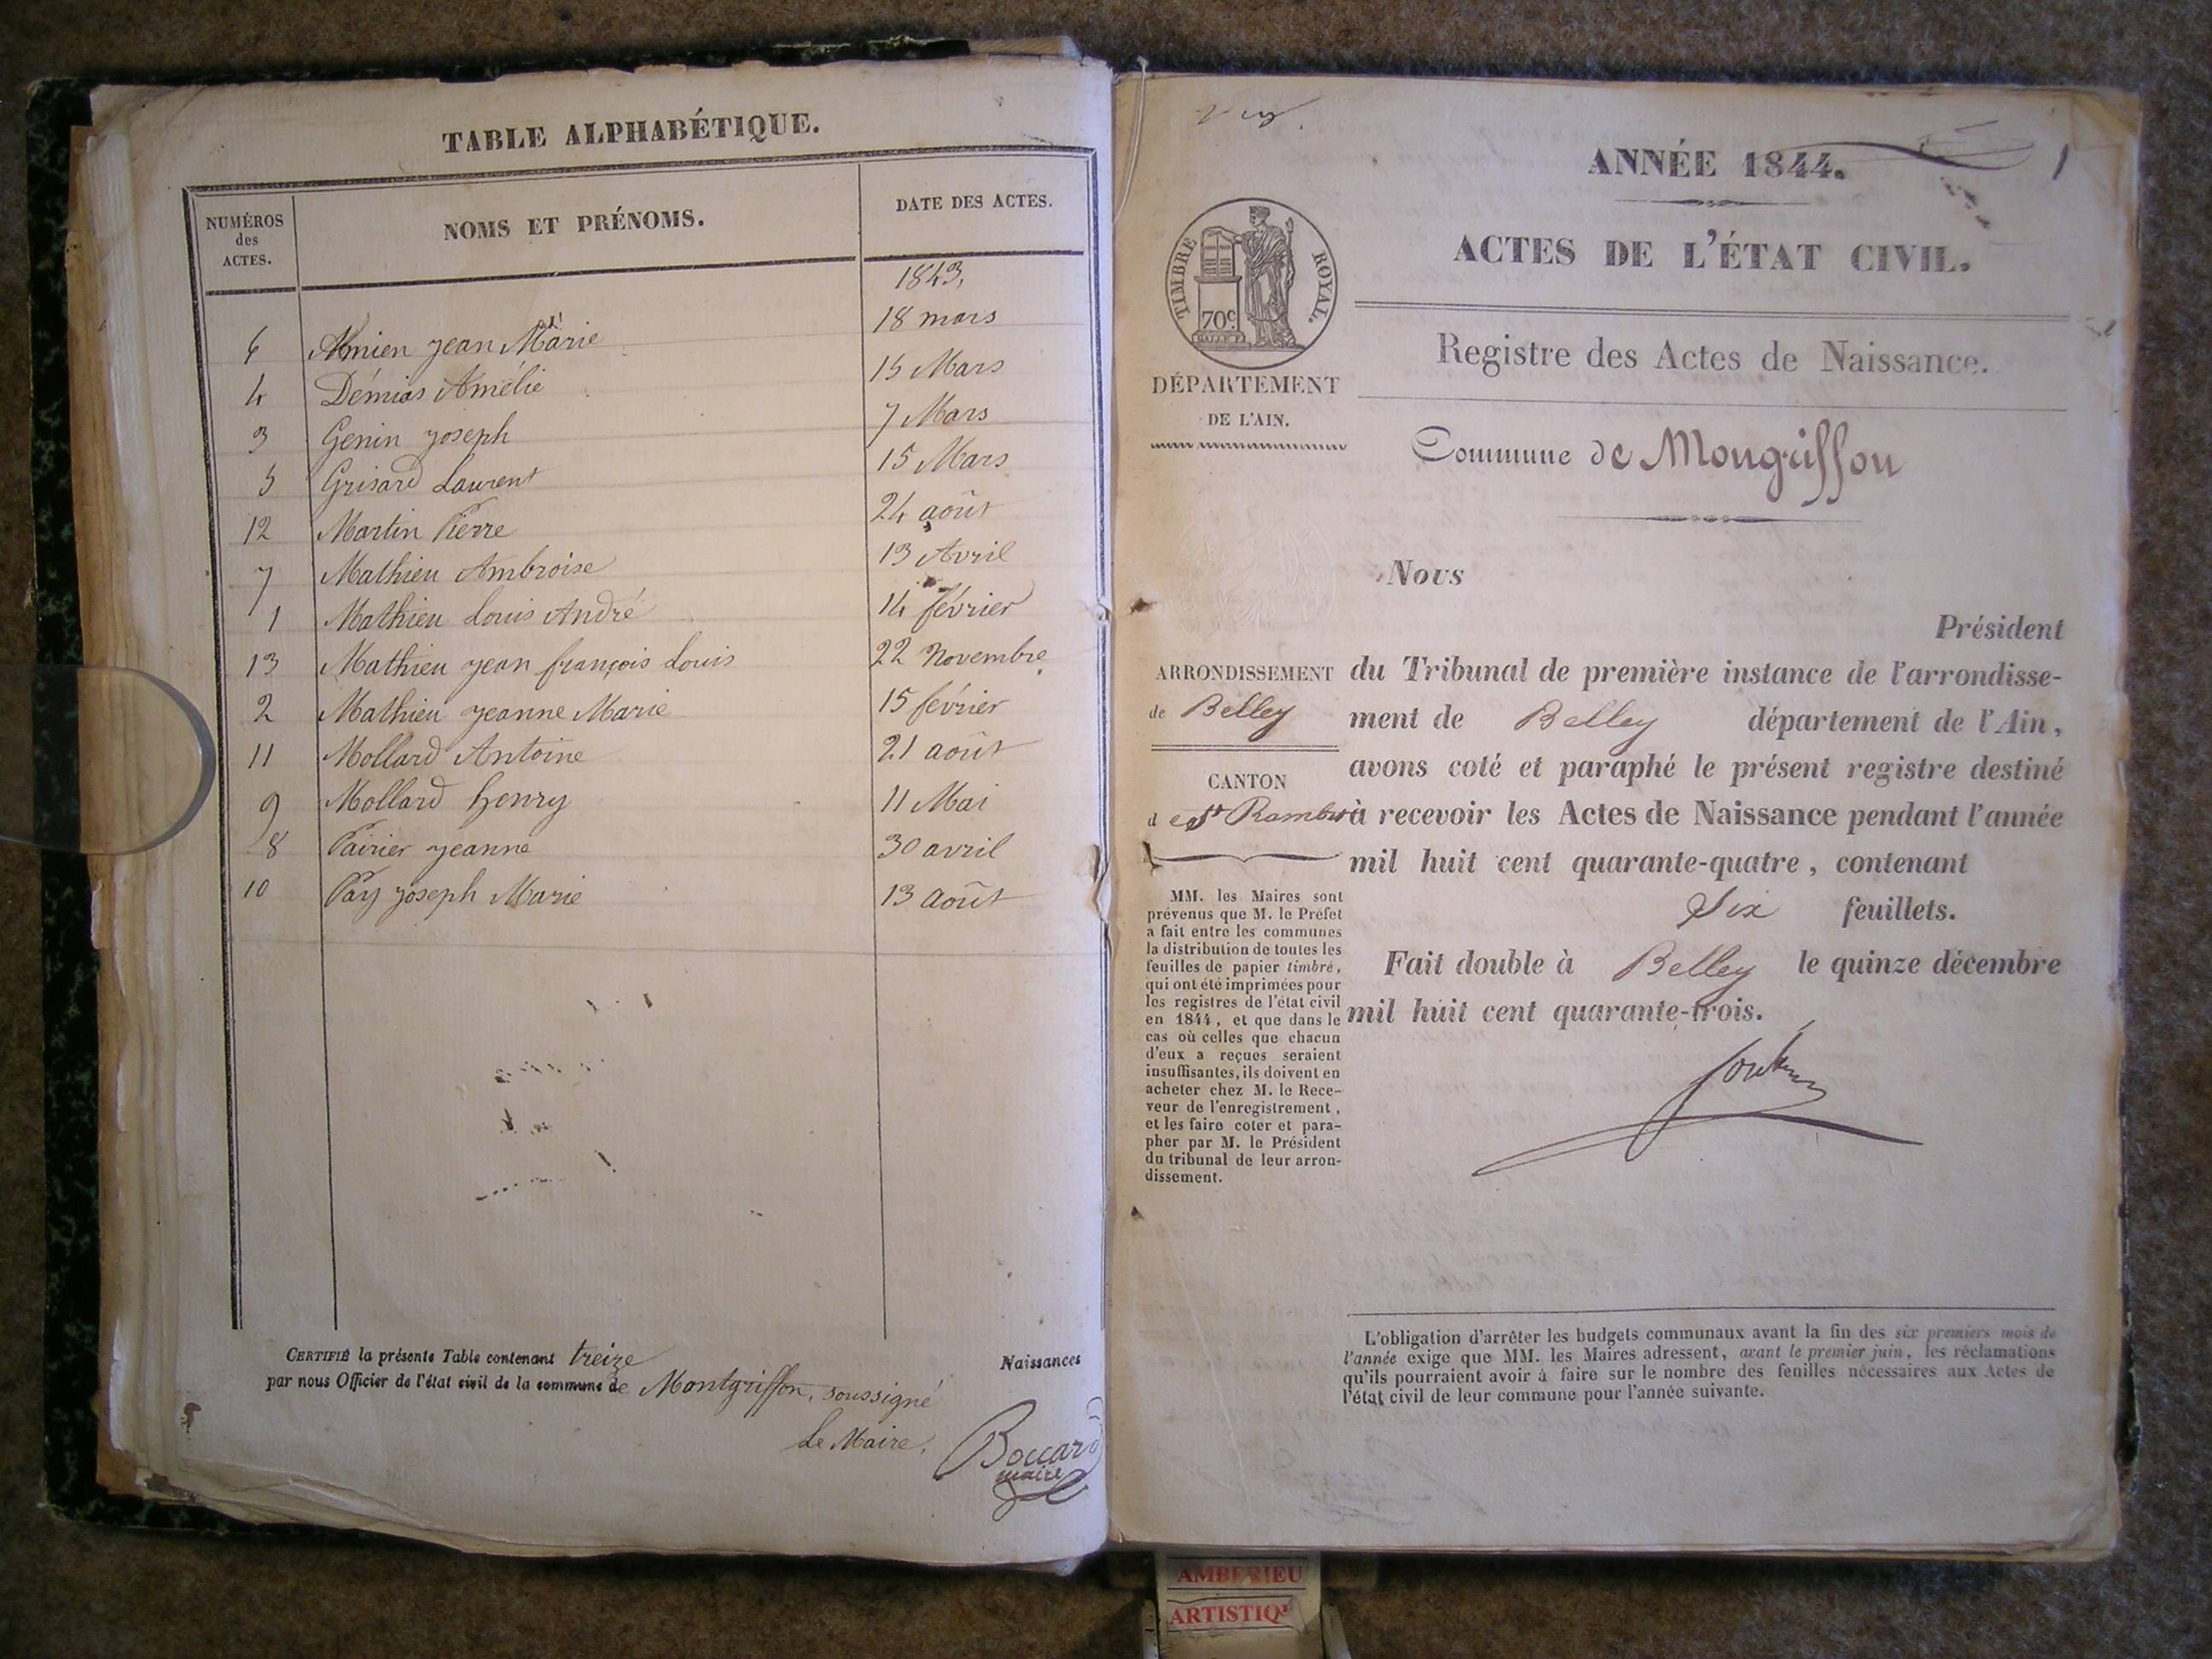 TABLE ALPHABÉTIQUE.
NUMÉROS des ACTES. NOMS ET PRÉNOMS. DATE DES ACTES.
1843,
6 Amien jean Marie 18 mars
4 Démias Amélie 15 Mars
3 Genin joseph 7 Mars
5 Grisard Laurent 15 Mars
12 Martin Pierre 24 août
7 Mathieu Ambroise 13 Avril
1 Mathieu Louis André 14 février
13 Mathieu jean françois Louis 22 Novembre
2 Mathieu jeanne Marie 15 février
11 Mollard Antoine 21 août
9 Mollard henry 11 Mai
8 Pairier jeanne 30 avril
10 Pay joseph Marie 13 Août
CERTIFIÉ la présente Table contenant treize Naissances
par nous Officier de l'état civil de la commune de Montgriffon, soussigné
Le Maire,
Boccard
maire
1
ANNÉE 1844.
ACTES DE L'ÉTAT CIVIL.
Registre des Actes de Naissance.
Commune de Mongriffon
TIMBRE ROYAL.
70c
DÉPARTEMENT
DE L'AIN.
ARRONDISSEMENT
de Belley
CANTON
de St Rambert
MM. les Maires sont
prévenus que M. le Préfet
a fait entre les communes
la distribution de toutes les
feuilles de papier timbré,
qui ont été imprimées pour
les registres de l'état civil
en 1844, et que dans le
cas où celles que chacun
d'eux a reçues seraient
insuffisantes, ils doivent en
acheter chez M. le Rece-
veur de l'enregistrement,
et les faire coter et para-
pher par M. le Président
du tribunal de leur arron-
dissement.
Nous
Président
du Tribunal de première instance de l'arrondisse-
ment de Belley département de l'Ain,
avons coté et paraphé le présent registre destiné
à recevoir les Actes de Naissance pendant l'année
mil huit cent quarante-quatre, contenant
Six feuillets.
Fait double à Belley le quinze décembre
mil huit cent quarante-trois.
L'obligation d'arrêter les budgets communaux avant la fin des six premiers mois de
l'année exige que MM. les Maires adressent, avant le premier juin, les réclamations
qu'ils pourraient avoir à faire sur le nombre des feuilles nécessaires aux Actes de
l'état civil de leur commune pour l'année suivante.
AMBERIEU
ARTISTIQ